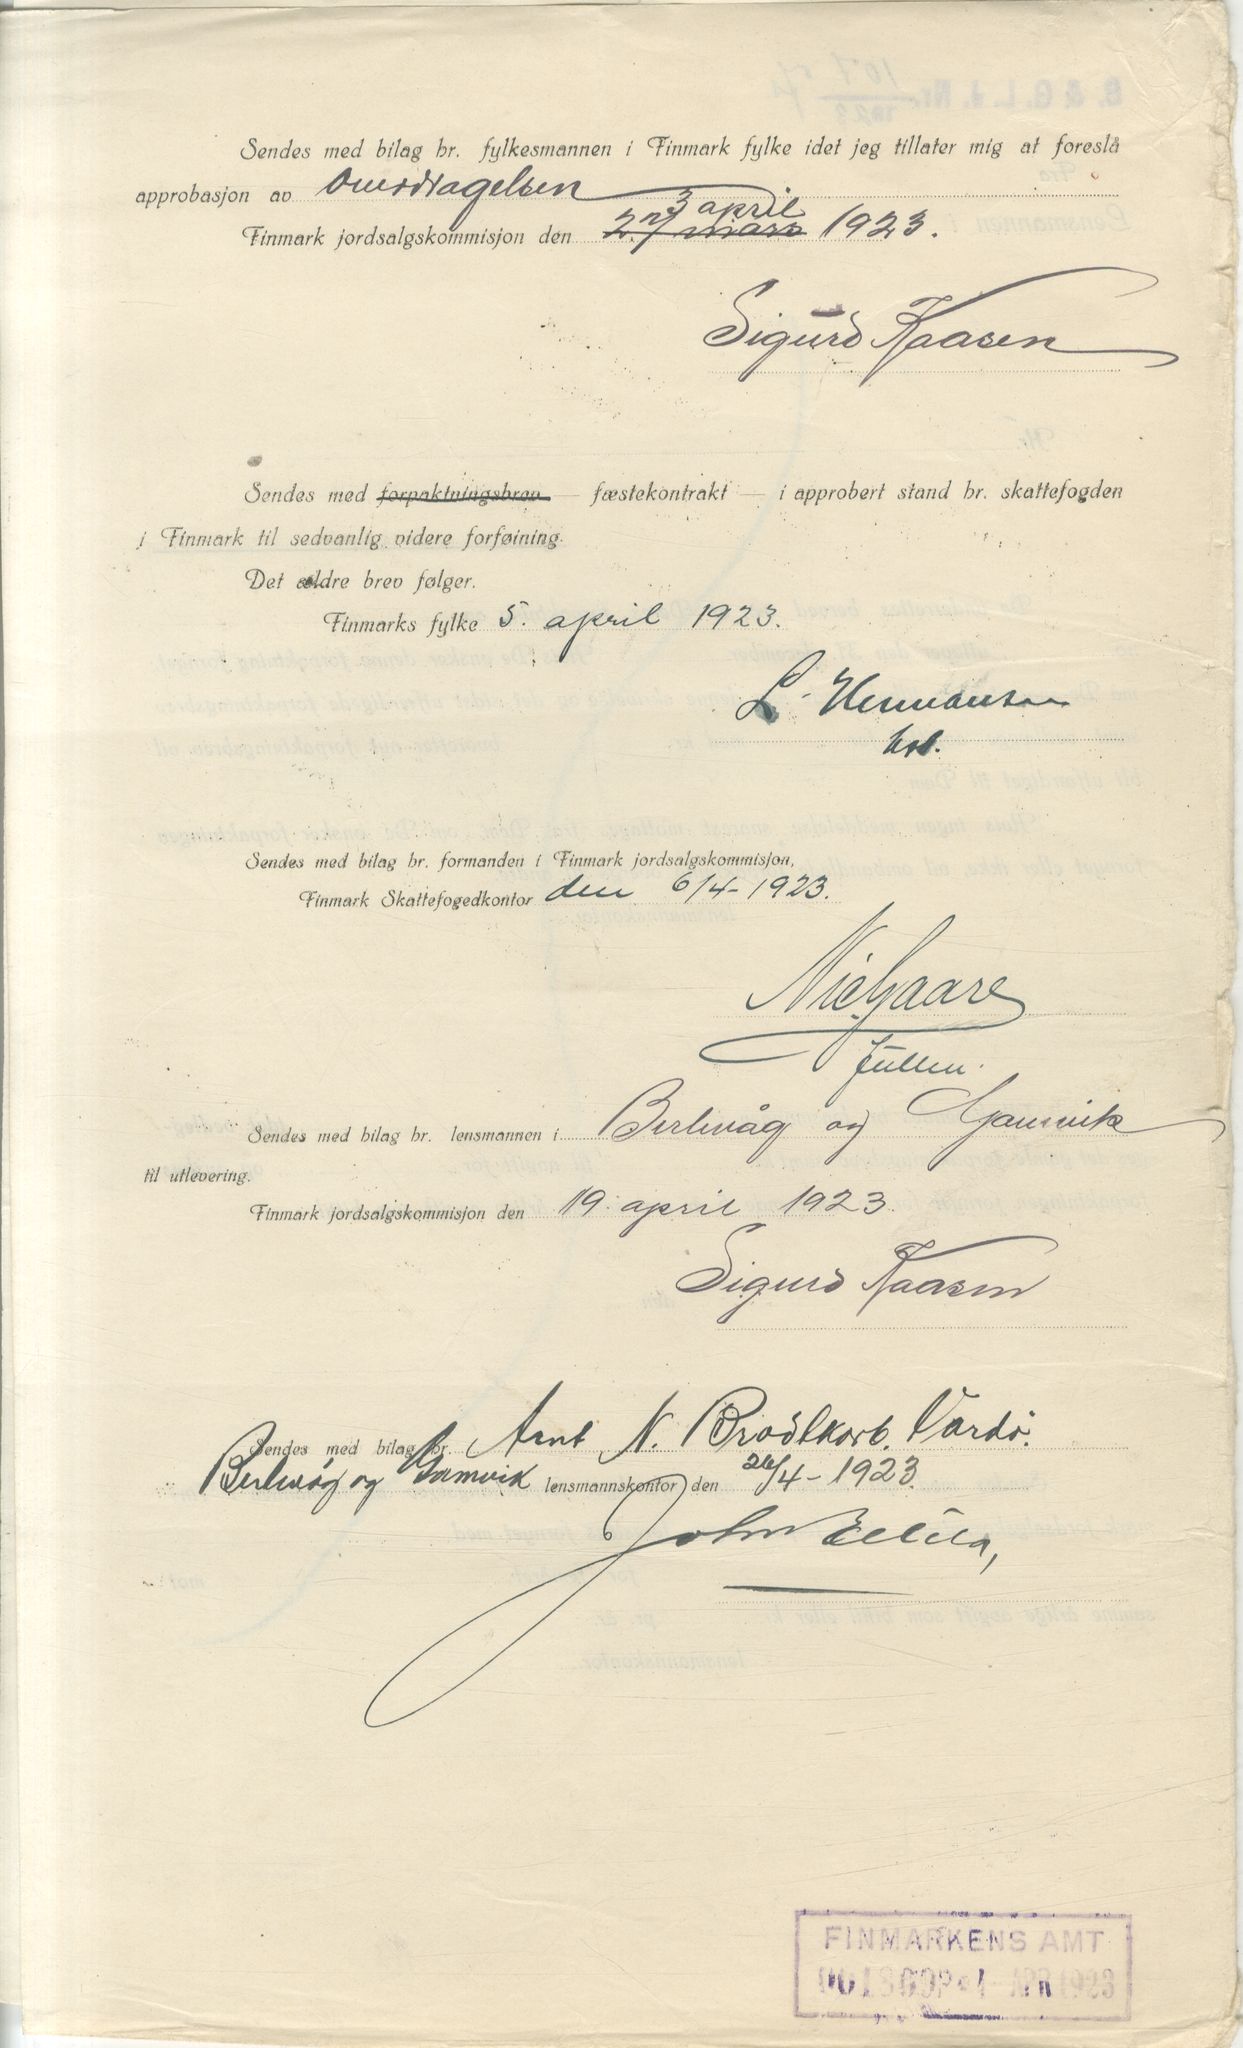 Sendes med bilag hr. fylkesmannen i Finmark fylke idet jeg tillater mig at foreslå
approbasjon av
3 april
Finmark jordsalgskommisjon den 27 mars 1923.
Sigurd Kaasen
Sendes med forpaktningsbrev — fæstekontrakt — i approbert stand hr. skattefogden
i Finmark til sedvanlig videre forføining.
Det ældre brev følger.
Finmarks fylke 5. april 1923.
L. Hermansen
Sendes med bilag hr. formanden i Finmark jordsalgskommisjon,
Finmark Skattefogedkontor den 6/4-1923.
Nic. Gaare
fullm.
Sendes med bilag hr. lensmannen i Berlevåg og Gamvik
til utlevering.
Finmark jordsalgskommisjon den 19. april 1923
Sigurd Kaasen
Sendes med bilag hr. Arnt N. Brodtkorb. Vardö.
Berlevåg og Gamvik lensmannskontor den 26/4-1923.
John
FINMARKENS AMT
APR 1923